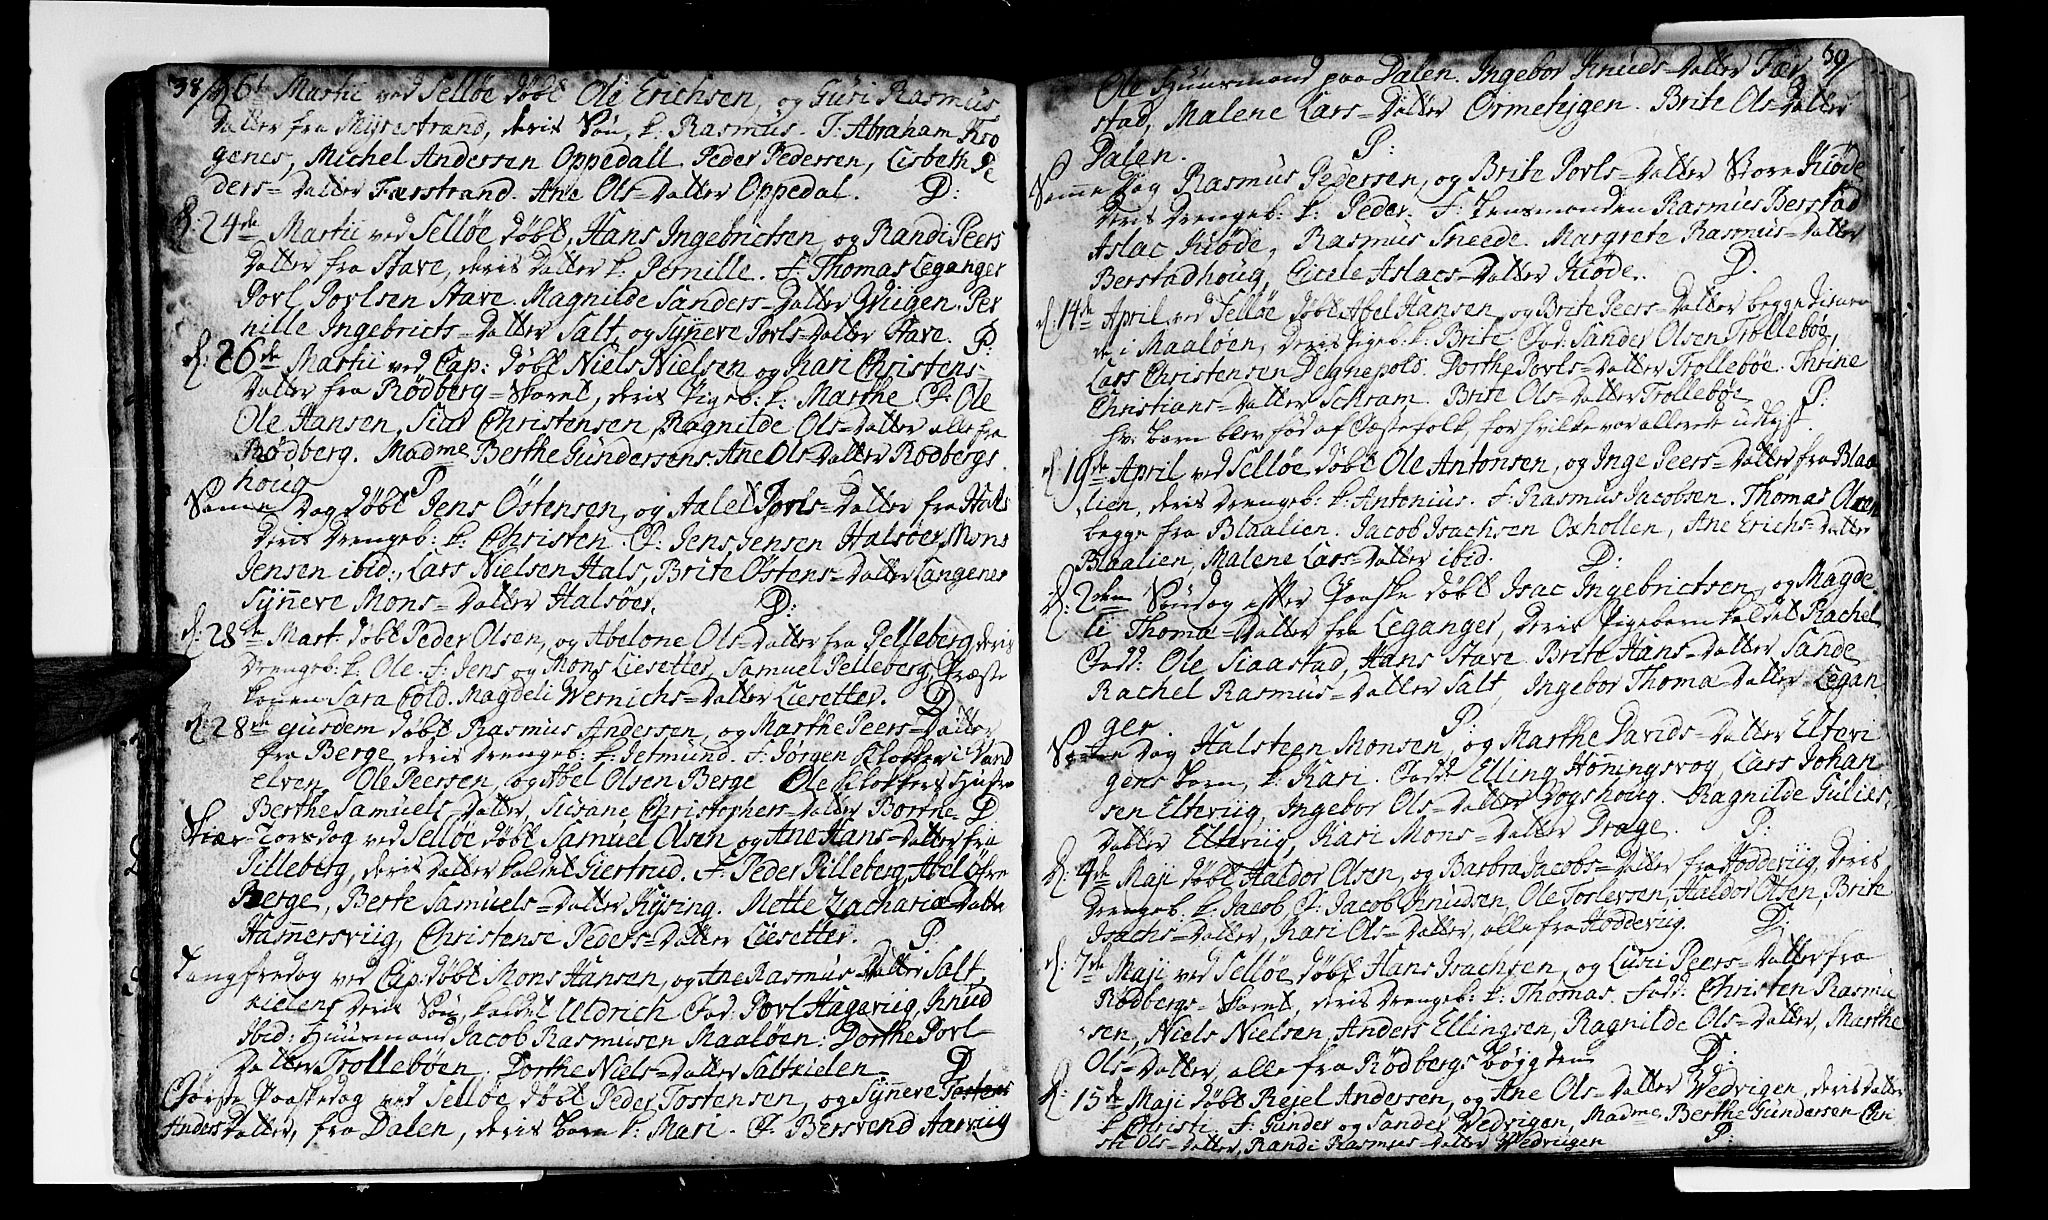 38/ 16t Martii ved Selløe døbt Ole Erichsen, og Guri Rasmus
Datter fra Myrestrand, deris Søn, k: Rasmus. F: Abraham Kro
genes, Michel Andersen Oppedall Peder Pedersen, Lisbeth Pe
ders=Datter Færstrand. Ane Ols=Datter Oppedal. P:
d: 24de Martii ved Selløe døbt, Hans Ingebrictsen, og Randi Peers
Datter fra Stave, deris datter k: Pernille. F: Thomas Leganger
Povl Povlsen Stave. Magnilde Sanders=Datter Wiigen. Per
nille Ingebricts=Datter Salt, og Synneve Povls=Datter Stave. P:
d: 26de Martii ved Cap: døbt Niels Nielsen og Kari Christens
Datter fra Rødberg=Skaret, deris Pigeb: k: Marthe. F: Ole
Ole Hansen, Siur Christensen, Ragnilde Ols=Datter alle fra
Rødberg. Madme Berthe Gundersens. Ane Ols=Datter Rødbergs
houg P
Samme Dag døbt Jens Østensen, og Aalet Povls=Datter fra Hals
Deris Drengeb: k: Christen. F: Jens Jensen Halsøer, Mons
Jensen ibid:, Lars Nielsen Hals, Brite Østens=Datter Langenes
Synneve Mons=Datter Halsøer. P:
d: 28de Mart: døbt Peder Olsen, og Abelone Ols=Datter fra Pelleberg, deris
Drengeb: k: Ole. F: Jens og Mons Liesetter, Samuel Pelleberg, Præste
konen Sara Cold. Magdeli Wernichs=Datter Liesetter. P
d: 28de ejusdem døbt Rasmus Andersen, og Marthe Peers=Datter
fra Berge, deris Drengeb: k: Jetmund. F: Jørgen Klokker i Vand
elven, Ole Peersen, og Abel Olsen Berge Ole Klokkers Hustroe
Berthe Samuels=Datter, Susane Christophers=Datter Borthe. P
Skær=Torsdag ved Selløe døbt Samuel Olsen og Ane Hans=Datter fra
Pilleberg, deris Datter kaldet Giertrud. F: Peder Pilleberg, Abel Øfre
Berge, Berte Samuels=Datter Rysing. Mette Zachariæ Datter
Hamnersviig, Christense Peders=Datter Liesetter. P.
Langfredag ved Cap. døbt Mons Hansen, og Ane Rasmus Datter Salt
kielens deris Søn, kaldet Uldrich Fad: Povl Hagaviig, Knud
ibid: Huusmand Jacob Rasmusen Maaløen. Dorthe Povl
Datter Trolleböen. Dorthe Niels=Datter Saltkielen P
Første Paaskedag ved Selløe døbt Peder Tostensen, og Synneve Tostens
Anders Datter, fra Dalen, deris barn k: Mari. F: Bersvend Aarviig
39/
Ole Huusmand paa Dalen. Ingebor Knuds=Datter Fær
stad, Malene Lars=Datter Ormehjgen. Brite Ols=Datter
Dalen. P:
Samme Dag Rasmus Pedersen, og Brite Povls=Datter Store Kiøde
deris Drengeb: k: Peder. F: Lensmanden Rasmus Berstad
Aslac Kiøde, Rasmus Sneede. Margrete Rasmus=Datter
Berstadhoug, Cicele Aslacs=Datter Kiøde. P.
d: 14de April ved Selløe døbt Abel Hansen, og Brite Peers=Datter begge tienen
de i Maaløen, deris Pigeb: k: Brite. Fad: Sander Olsen Trollebøe,
Lars Christensen Degnepold. Dorthe Povls=Datter Trollebøe. Thrine
Christians=Datter Schram. Brite Ols=Datter Trollebøe P:
hv: barn blev fød af Ægtefolk, for hvilke var allerede udlyst.
d: 19de April ved Selløe døbt Ole Antonsen, og Inge Peers=Datter fra Blaa
lien, deris Drengeb: k: Antonius. F: Rasmus Jacobsen. Thomas Olsen
begge fra Blaalien. Jacob Isachsen Oxhollen, Ane Erichs=Datter
Blaalien, Malene Lars=Datter ibid. P:
d: 2den Søndag efter Paaske døbt Isac Ingebrictsen, og Magde
li Thoma=Datter fra Leganger, Deris Pigebarn kaldet Rachel
Fadd: Ole Siaastad, Hans Stave. Brite Hans=Datter Sande
Rachel Rasmus=Datter Salt, Ingebor Thoma=Datter Legan
ger P:
Samme Dag Halsteen Monsen, og Marthe Davids=Datter Eltevi
gens barn, k: Kari. Fadd: Elling Honingsvog, Lars Johan
sen Eltevig, Ingebor Ols=Datter Dogshoug. Ragnilde Gulies
Datter Elteviig, Kari Mons=Datter Drage. P:
d: 4de Maji døbt Haldor Olsen, og Barbra Jacobs=Datter fra Hoddeviig, Deris
Drengeb: k: Jacob. F: Jacob Knudsen, Ole Torlevsen, Haldor Olsen, Brite
Isachs=Datter, Kari Ols=Datter, alle fra Hoddeviig. P
d: 7de Maji ved Selløe døbt Hans Isachsen, og Lusi Peers=Datter fra
Rødbergs=Skaret, deris Drengeb: k: Thomas. Fadd: Christen Rasmu
sen, Niels Nielsen, Anders Ellingsen, Ragnilde Ols=Datter, Marthe
Ols=Datter, alle fra Rødbergs bøjgden P:
d: 15de Maji døbt Rejel Andersen, og Ane Ols=Datter Vedvigen, deris datter
k Christi. F: Gunder og Sander Vedvigen, Madme Berthe Gundersen Chri
sti Ols=Datter, Randi Rasmus=Datter Wedviigen P: